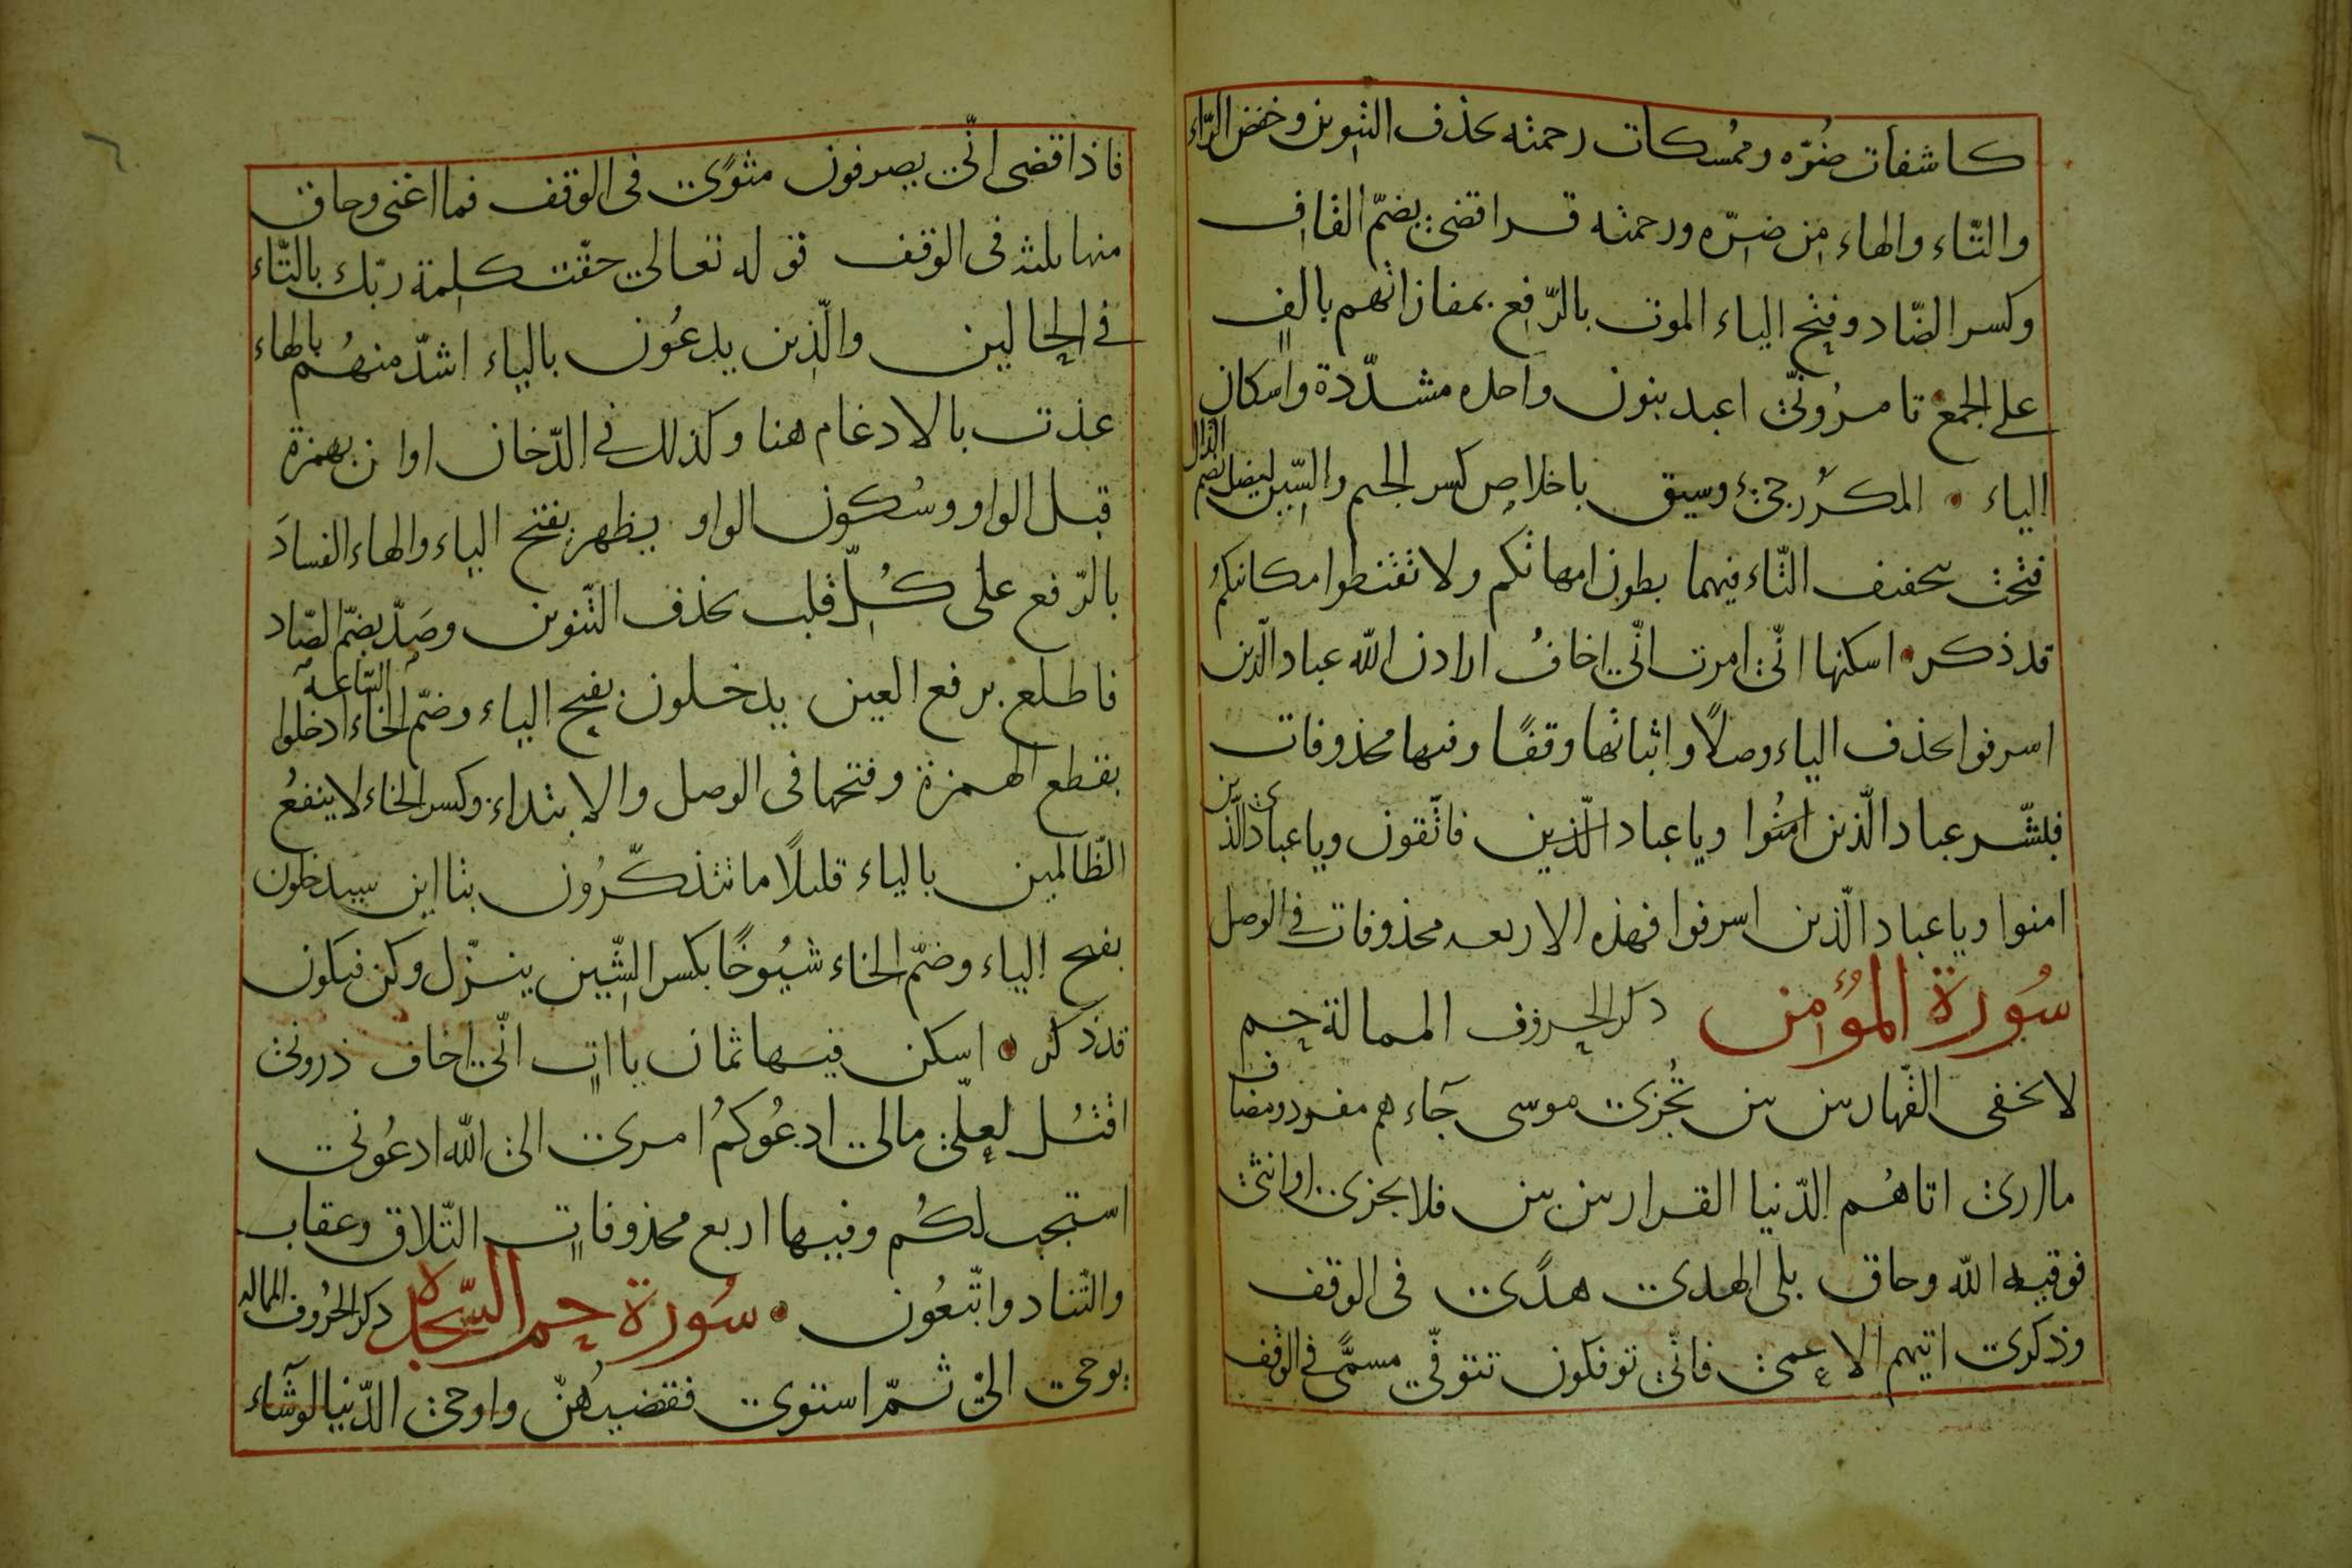 كاشفات ضُرّه وممُسكات رحمته بحذف التنوين وخفض الرّاء
والتّاء والهاء مِن ضِرّه ورحمته قرا قضى بضمّ القاف
وكسر الضّاد وفتح الياء الموت بالرّفع بمفازاتهم بالفٍ
على الجمع تامرُونّى اعبد بنون واحده مشدّدة واسكان
الياء المكرّر جىء وسيق باخلاص كسر الجيم والسّين ليضل بضم
فتحت بتخفيف التّاء فيهما بطون امهاتكم ولا تقنطوا مكانتكمُ
قد ذكر اسكنها انّى امرت انّى اخافُ ارادنى الله عباد الّذين
اسرفوا بحذف الياء وصلاً واثباتها وقفًا وفيها محذوفات
فبشّر عباد الّذين امنُوا ويا عباد الّذين فاتّقون ويا عبادى الّذين
امنوا ويا عباد الّذين اسرفوا فهذه الاربعه محذوفات فى الوصل
سُورة المؤمن ذكر الحروف الممالة حم
لا يخفى القهار بين بين تُجزى موسى جآءهم مفرد ومضاف
ما ارى اتاهُم الدّنيا القرار بين بين فلا يجزى او انثى
فوقيه الله وحاق بلى الهدى هدًى فى الوقف
وذكرى اتيهم الاعمى فانّى توفكون تتوفّى مسمًّى فى الوقف
فاذا قضى انّى يصرفون مثوًى فى الوقف فما اغنى وحاق
منها ثلثه فى الوقف قوله تعالى حقّت كلمة ربّك بالتّاء
فى الحالين والّذين يدعُون بالياء اشدّ منهُم بالهاء
عذت بالادغام هنا وكذلك فى الدّخان او ان بهمزة
قبل الواو وسُكون الواو يظهر بفتح الياء والهاء الفسادَ
بالرّفع على كُلّ قلب بحذف التّنوين وصَدّ بضمّ الصّاد
فاطلع برفع العين يدخلون بفتح الياء وضمّ الخاء السّاعة ادخلوا
بقطع الهمزة وفتحها فى الوصل والابتداء وكسر الخاء لا ينفعُ
الظّالمين بالياء قليلًا ما تتذكّرُون بتااين سيدخلون
بفتح الياء وضمّ الخاء شيُوخًا بكسر الشّين ينزّل وكن فيكون
قد ذكر اسكن فيها ثمان يااتٍ انّى اخاف ذرونى
اقتُل لعلّى مالى ادعُوكمُ امرى الى الله ادعُونى
استجب لكُم وفيها اربع محذوفاتٍ التّلاق وعقاب
والتّناد واتّبعُون سُورة حم السّجدة ذكر الحُروف المماله
يوحى الىّ ثمّ استوى فقضيهُنّ واوحى الدّنيا لو شآء